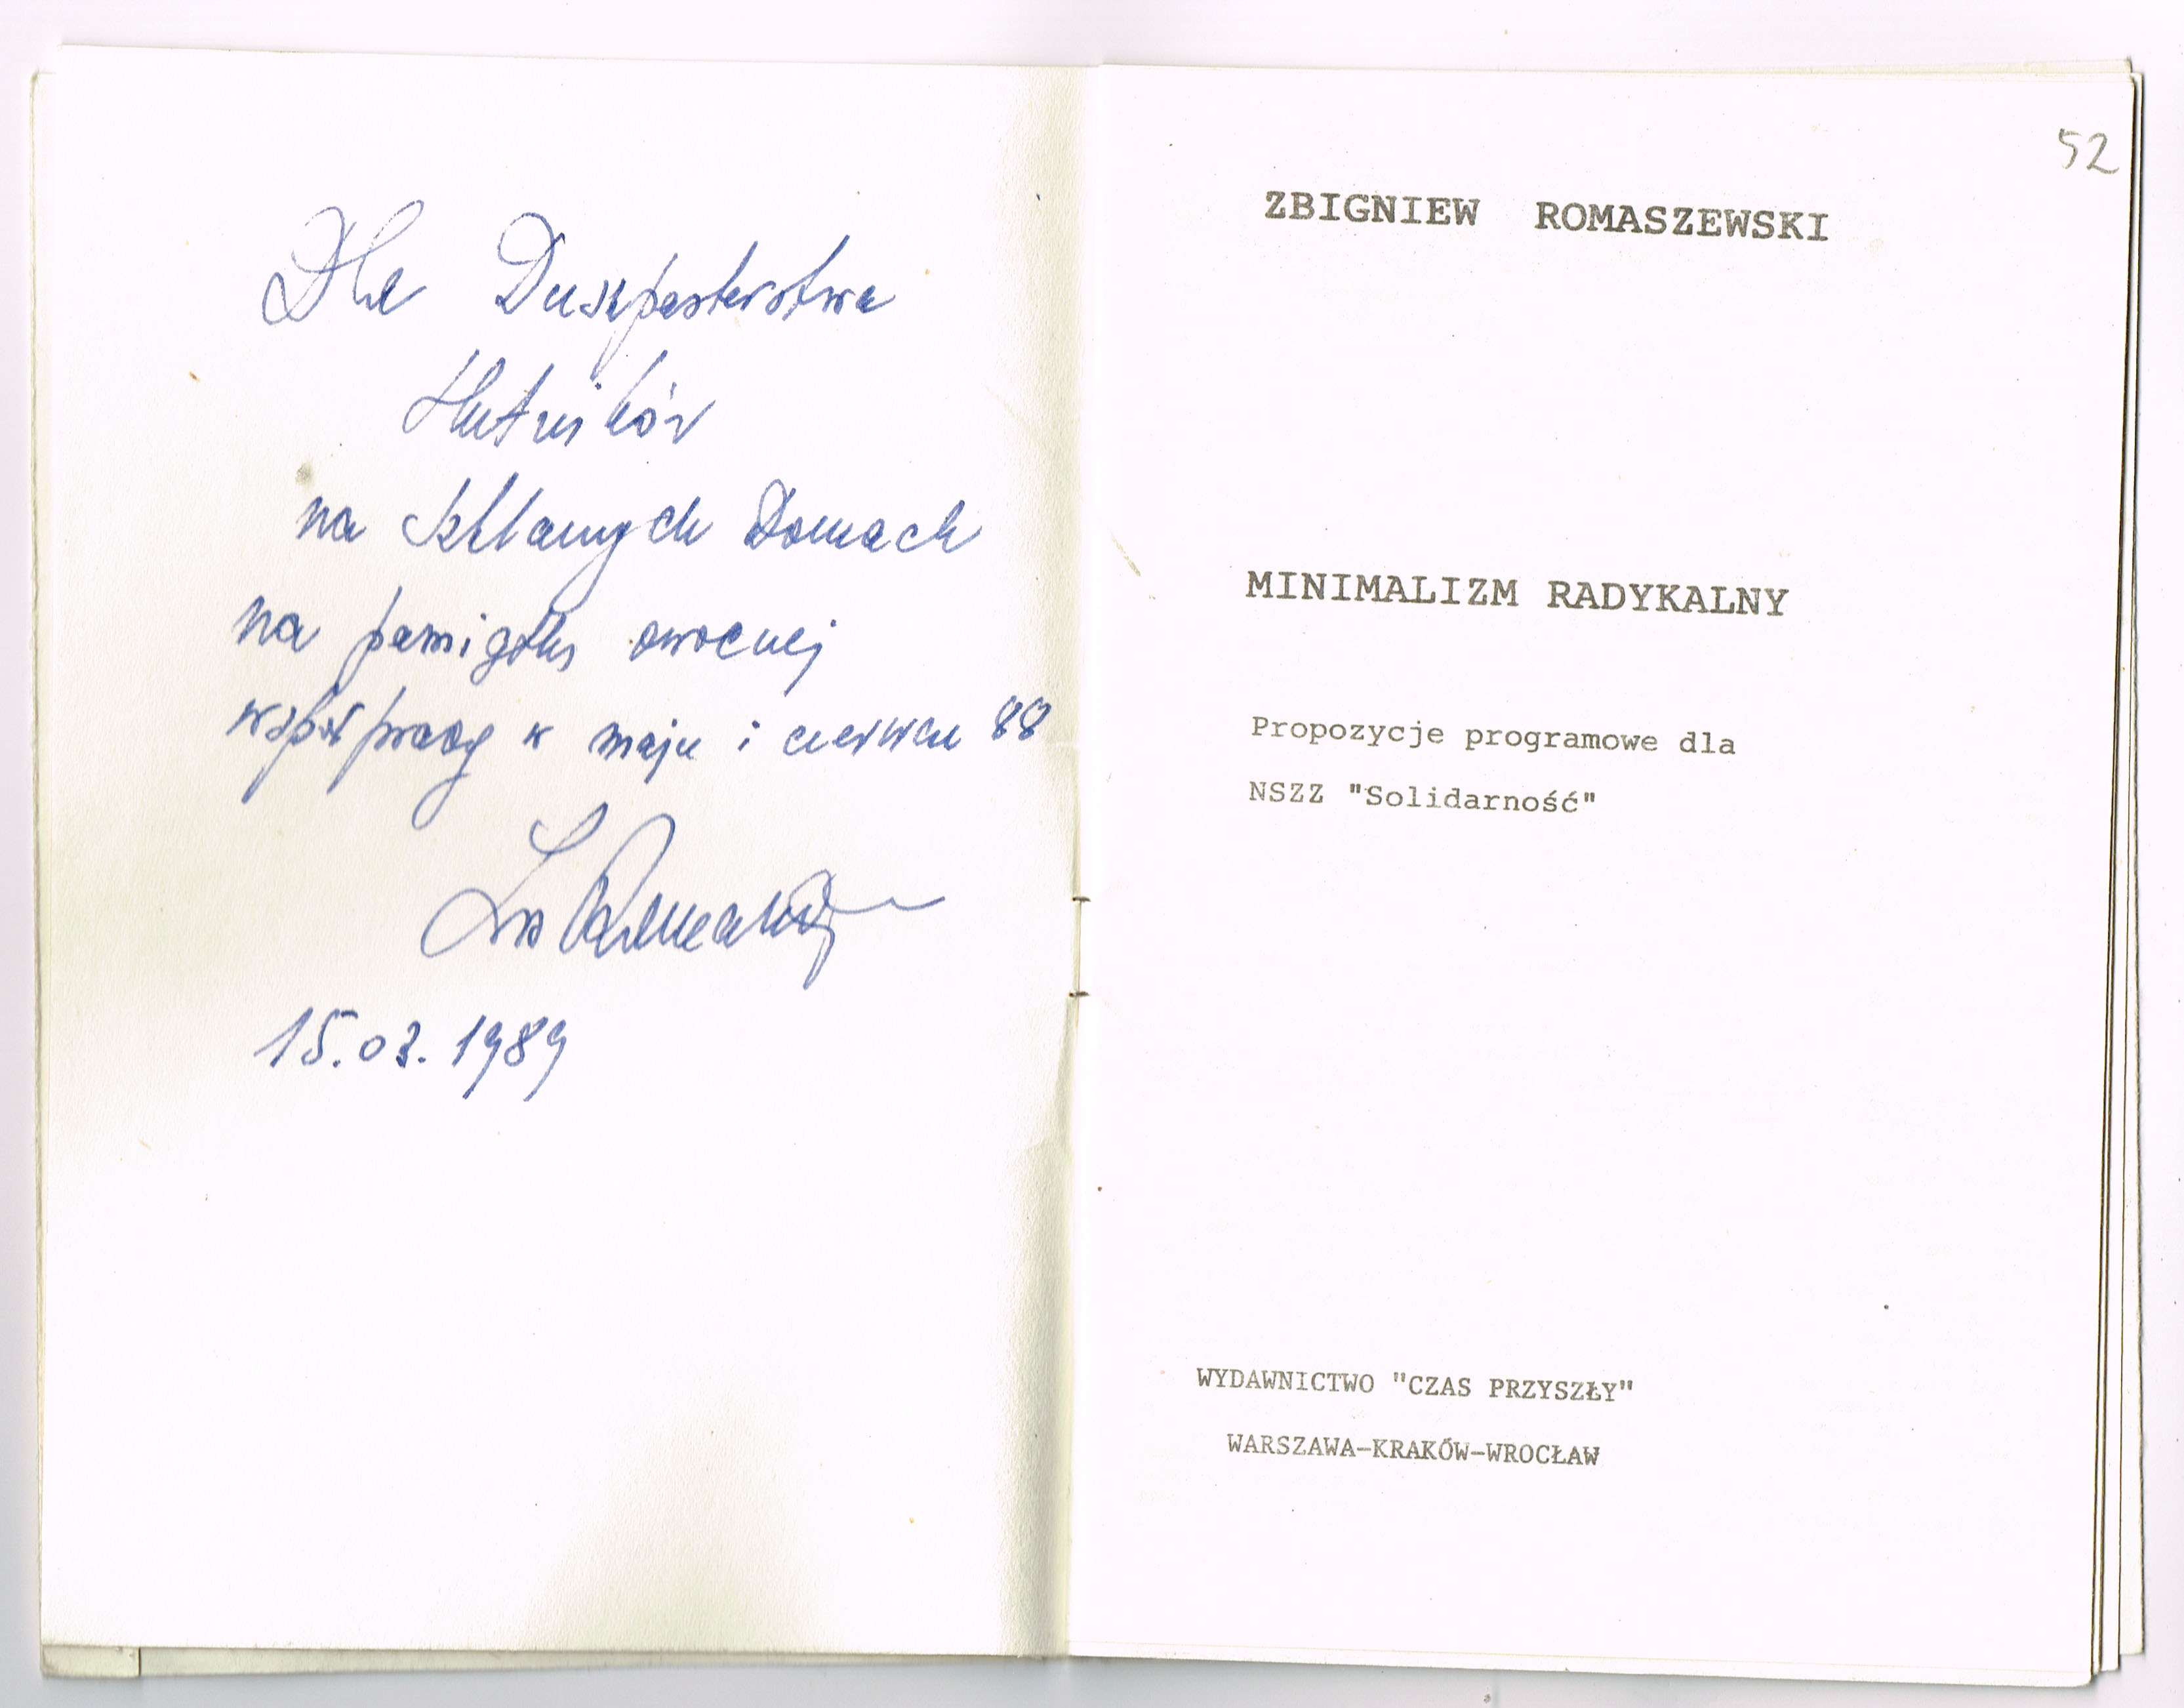 Dla Duszpasterstwa
Hutników
na Szklanych Domach
na pamiątkę owocnej
współpracy w maju i czerwcu 88
15.03.1989
52
ZBIGNIEW ROMASZEWSKI
MINIMALIZM RADYKALNY
Propozycje programowe dla
NSZZ "Solidarność"
WYDAWNICTWO "CZAS PRZYSZŁY"
WARSZAWA-KRAKÓW-WROCŁAW